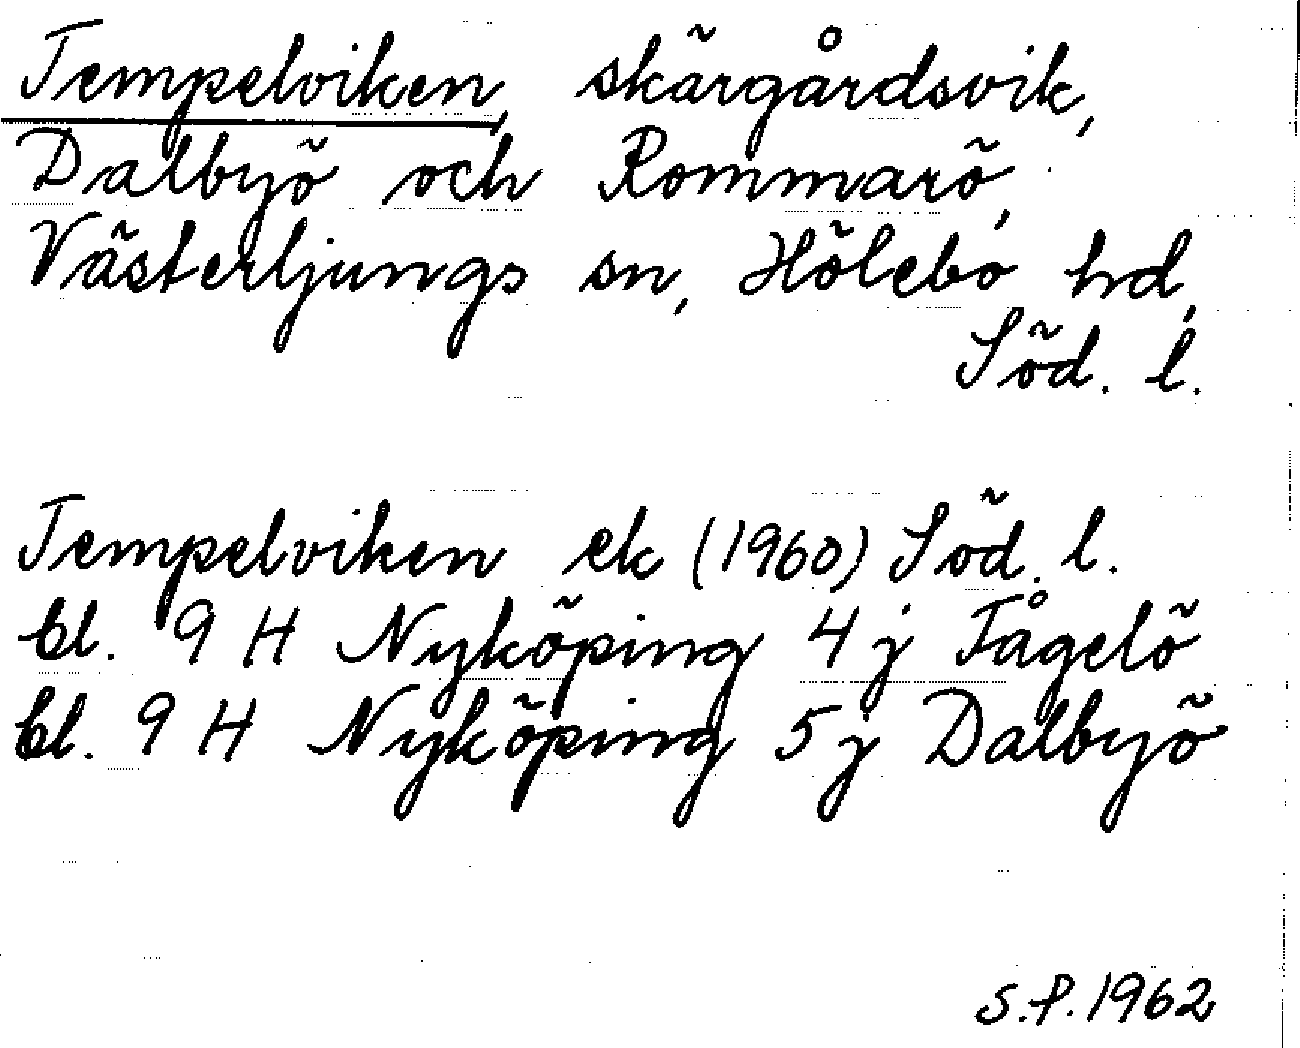 Tempelviken, skärgårdsvik,
Dalbyö och Rommarö,
Västerljungs sn, Hölebo hd,
Söd. l.
Tempelviken ek (1960) Söd. l.
bl. 9 H Nyköping 4 j Fågelö
bl. 9 H Nyköping 5 j Dalbyö
S.P. 1962